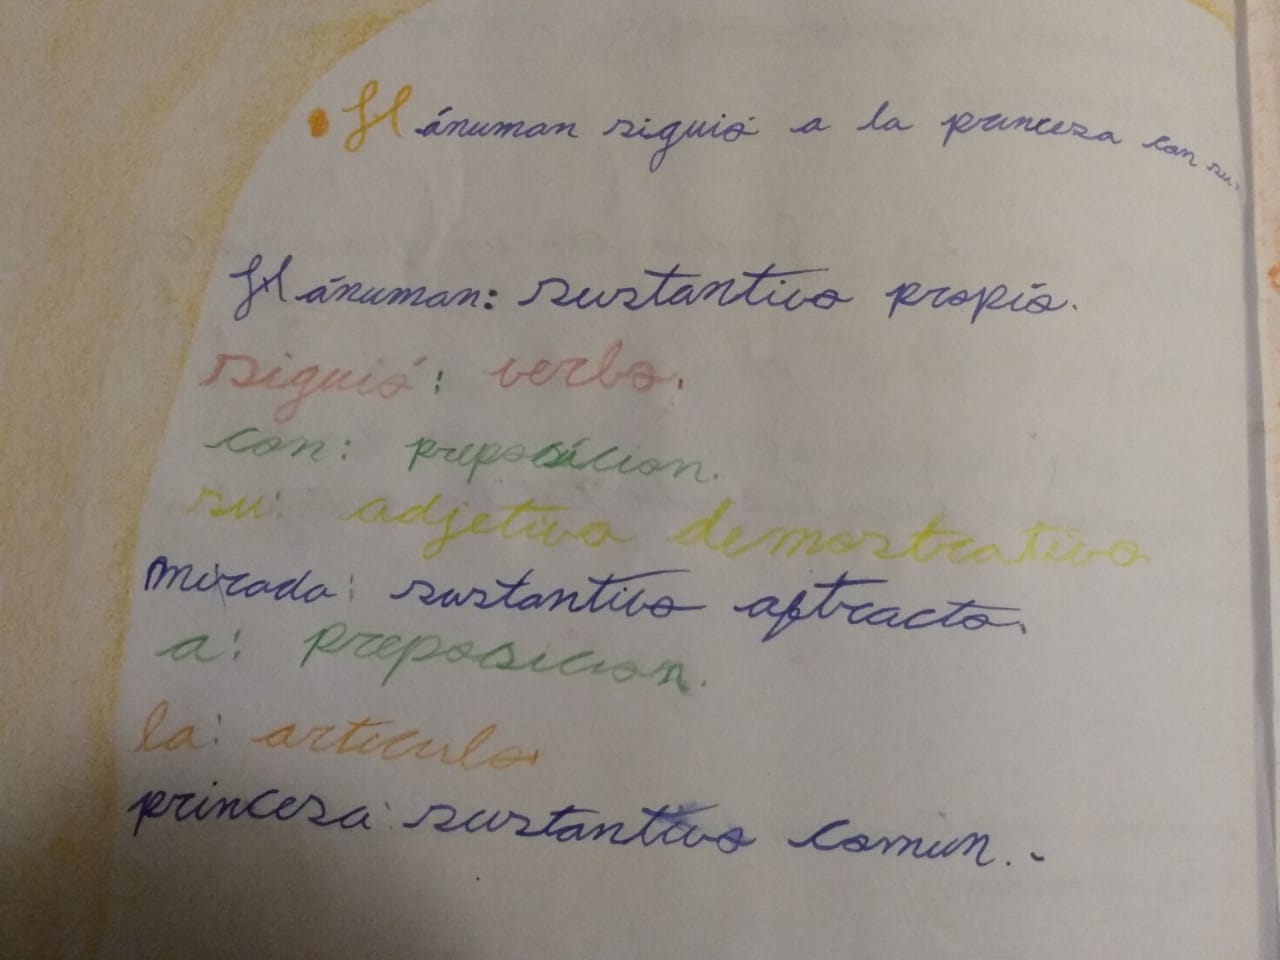 Hánuman siguió a la princesa con su
Hánuman: sustantivo propio.
siguió: verbo.
con: preposicion.
su: adjetivo demostrativo
mirada: sustantivo aptracto.
a: preposicion.
la: articulo.
princesa: sustantivo comun.-